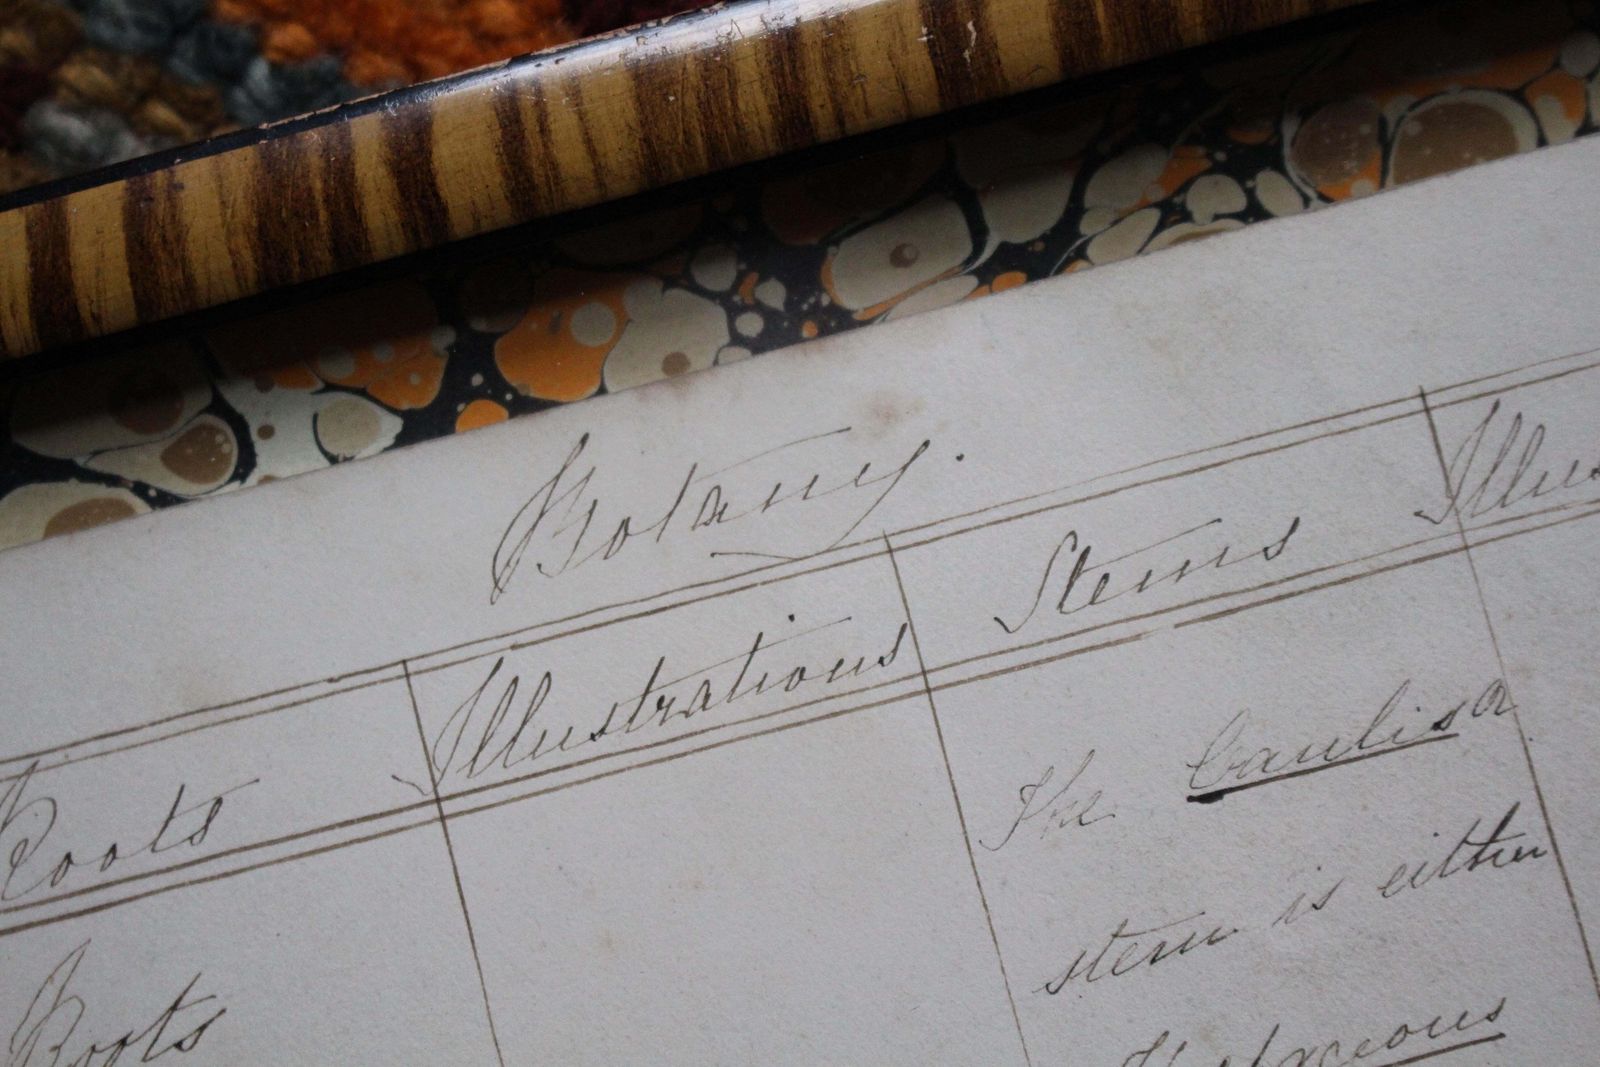 Botany.
Roots Illustrations Stems Illus
Roots
The Caulis a
stem is either